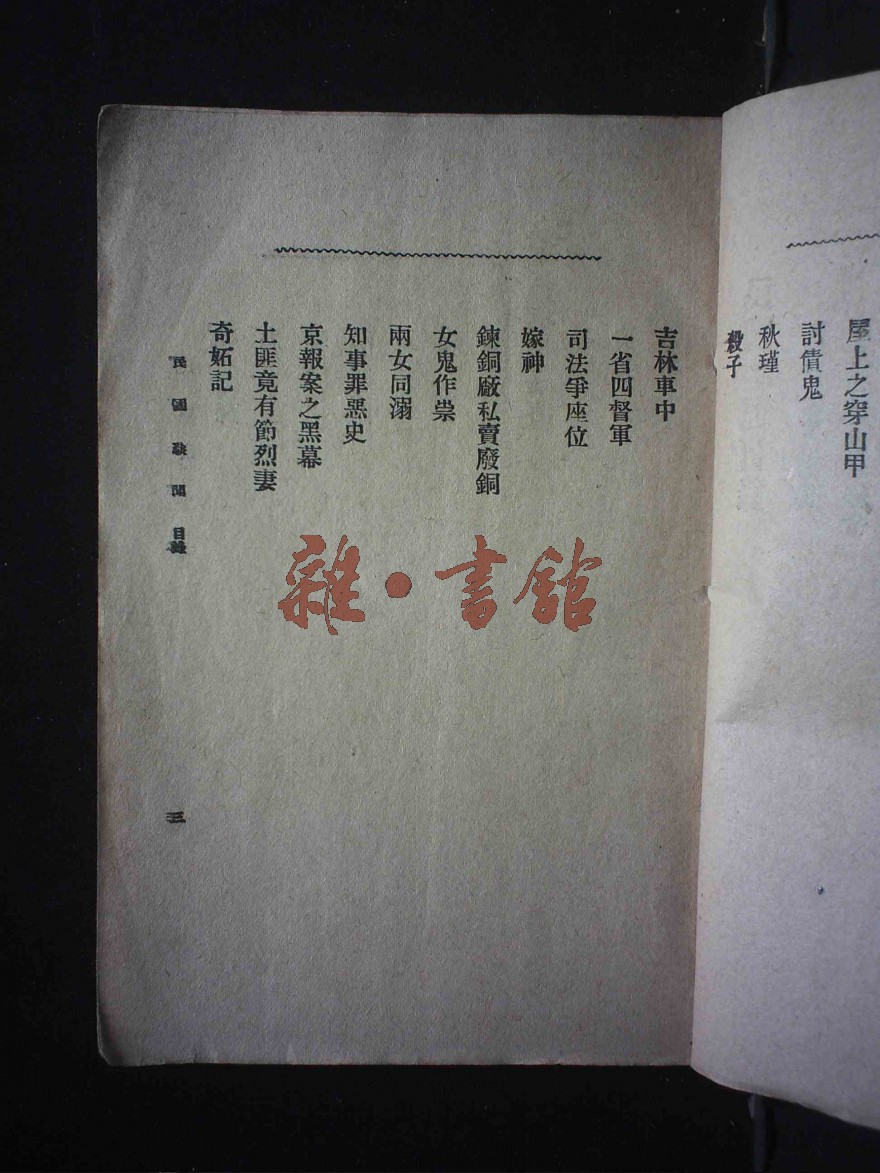 屋上之穿山甲
討債鬼
秋瑾
殺子
吉林車中
一省四督軍
司法爭座位
嫁神
鍊銅廠私賣廢銅
女鬼作祟
兩女同溺
知事罪惡史
京報案之黑幕
土匪竟有節烈妻
奇妬記
民國 聞 目錄
三
雜·書館